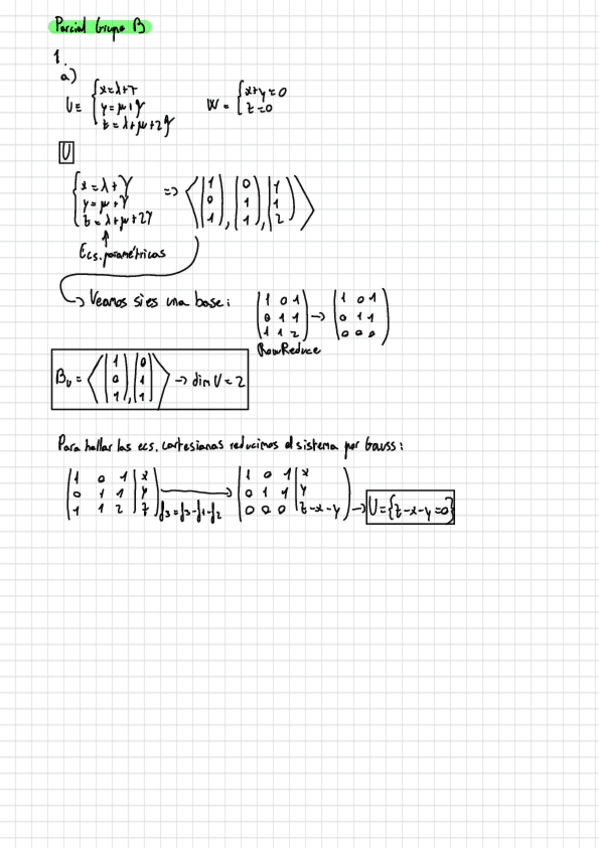 Parcial Grupo B
1.
a)
U = { x = λ + γ
y = μ + γ
z = λ + μ + 2γ
W = { x + y = 0
z = 0
U
{ x = λ + γ
y = μ + γ
z = λ + μ + 2γ
=> < (1 0 1), (0 1 1), (1 1 2) >
Ecs. paramétricas
-> Veamos si es una base:
( 1 0 1
0 1 1
1 1 2 )
->
( 1 0 1
0 1 1
0 0 0 )
RowReduce
B_U = < (1 0 1), (0 1 1) > -> dim U = 2
Para hallar las ecs. cartesianas reducimos el sistema por Gauss:
( 1 0 1 | x
0 1 1 | y
1 1 2 | z )
f3 = f3 - f1 - f2
( 1 0 1 | x
0 1 1 | y
0 0 0 | z - x - y )
-> U = { z - x - y = 0 }